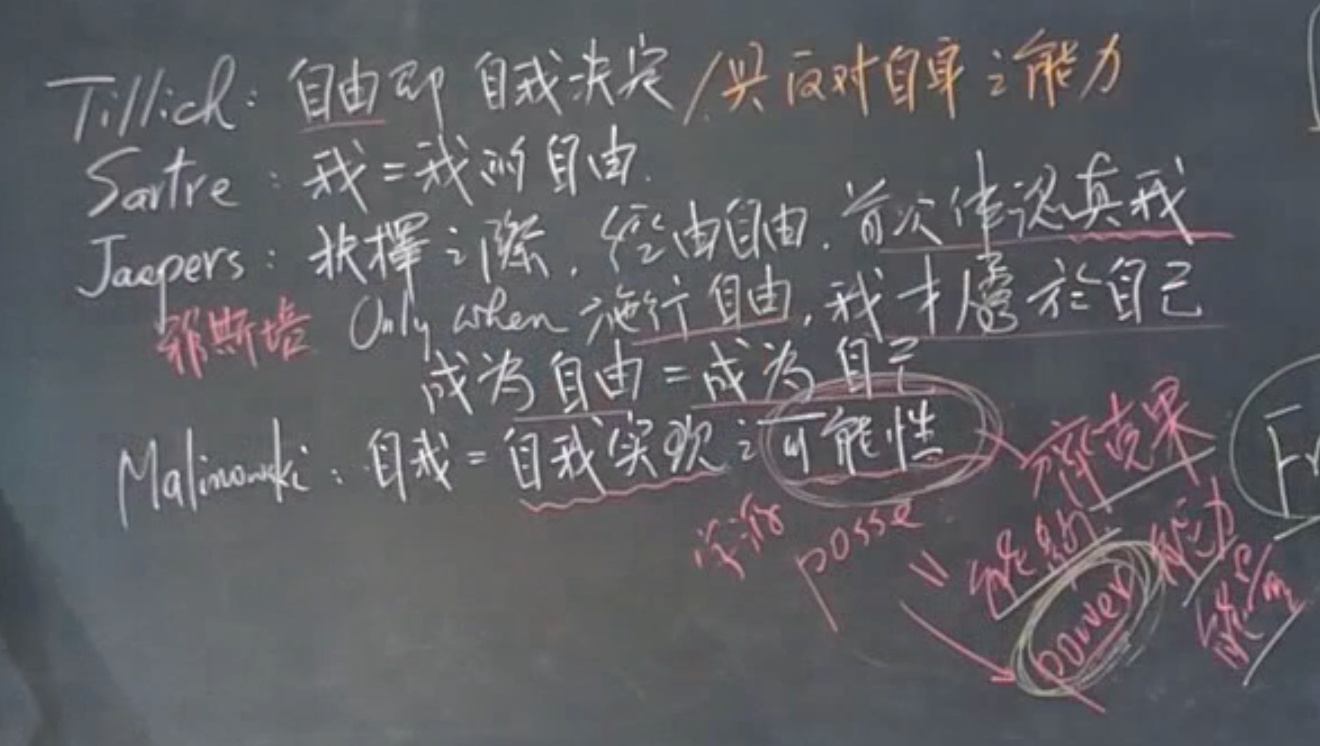 Tillich: 自由即 自我決定 / 具反对自身之能力
Sartre: 我=我的自由.
Jaspers: 抉擇之際, 經由自由, 首次体认真我
Only when 施行自由, 我才屬於自己
成为自由=成为自己
Malinowski: 自我=自我实现之可能性
posse
能夠
能力
power